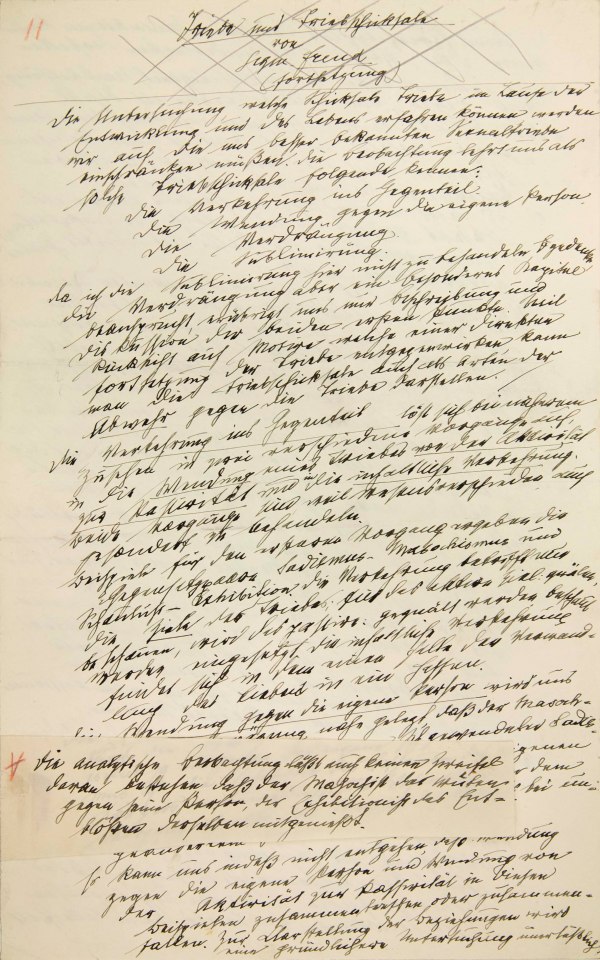 11
Triebe und Triebschicksale
von
Sigm Freud
(Fortsetzung)
Die Untersuchung welche Schicksale Triebe im Laufe der
Entwicklung und des Lebens erfahren können werden
wir auf die uns besser bekannten Sexualtriebe
einschränken müßen. Die Beobachtung lehrt uns als
solche Triebschicksale folgende kennen:
Die Verkehrung ins Gegenteil
Die Wendung gegen die eigene Person
Die Verdrängung
Die Sublimirung.
Da ich die Sublimirung hier nicht zu behandeln gedenke
die Verdrängung aber ein besonderes Kapitel
beansprucht, erübrigt uns nur Beschreibung und
Diskussion der beiden ersten Punkte. Mit
Rücksicht auf Motive welche einer direkten
Fortsetzung der Triebe entgegenwirken kann
man die Triebschicksale auch als Arten der
Abwehr gegen die Triebe darstellen.
Die Verkehrung ins Gegenteil löst sich bei näherem
Zusehen in zwei verschiedene Vorgänge auf,
in die Wendung eines Triebes von der Aktivität
zur Passivität und die inhaltliche Verkehrung.
Beide Vorgänge sind weil wesensverschieden auch
gesondert zu behandeln.
Beispiele für den ersteren Vorgang ergeben die
Gegensatzpaare Sadismus-Masochismus und
Schaulust-Exhibition. Die Verkehrung betrifft nur
die Ziele des Triebes; für das aktive Ziel: quälen,
beschauen, wird das passive: gequält werden beschaut
werden eingesetzt. Die inhaltliche Verkehrung
findet sich in dem einen Falle der Verwand-
lung des Liebens in ein Hassen.
Die Wendung gegen die eigene Person wird uns
nahe gelegt, daß der Masoch-
Sadis-
+ Die analytische Beobachtung läßt auch keinen Zweifel
daran bestehen daß der Masochist das Wüten
gegen seine Person, der Exhibitionist das Ent-
blößen derselben mitgenießt.
eigenen
dem
bei un-
geändertem
Es kann uns indeß nicht entgehen daß Wendung
gegen die eigene Person und Wendung von
der Aktivität zur Passivität in diesen
Beispielen zusammentreffen oder zusammen-
fallen. Zur Klarstellung der Beziehungen wird
eine gründlichere Untersuchung unerläßlich.